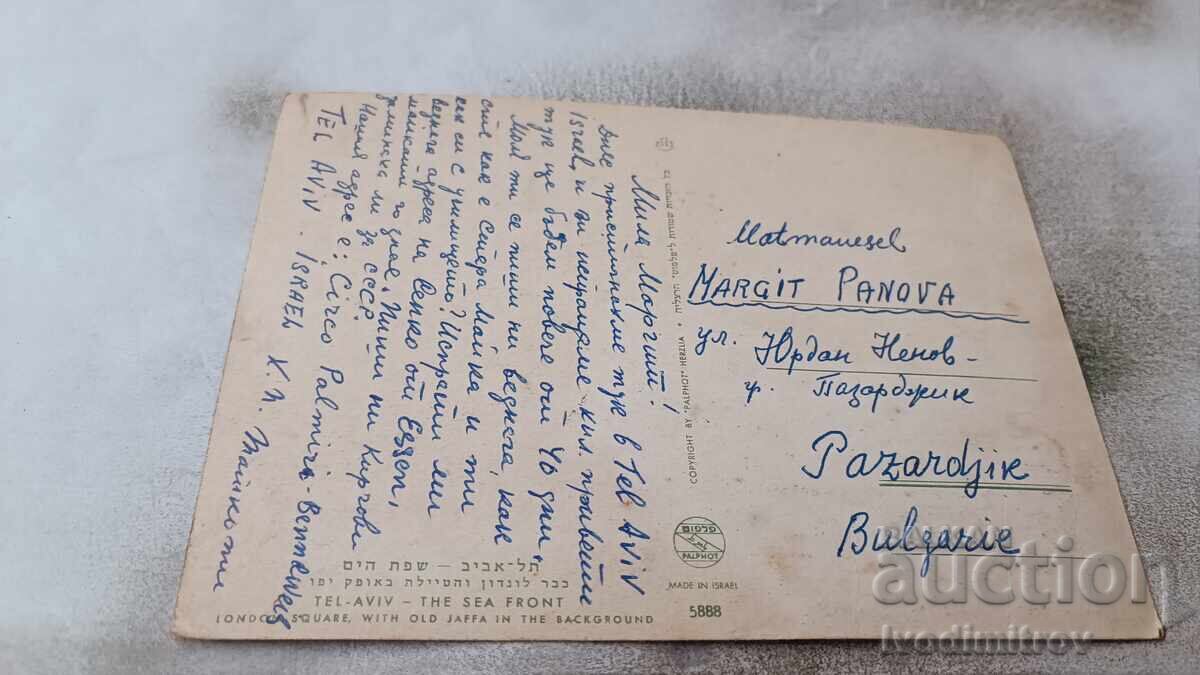 Мила Маргит!
Днес пристигнахме тук в Tel Aviv
Israel, и ви изпращаме кът. приветите
тук ще бъдем повече от 40 дни"
Моля ти се пиши ни веднага, как
сте как е Стара Майка и ти
как си с училището? Изпрати ми
веднага адреса на Сенко от Essen,
пиши ни Киргови
заминаха ли за СССР.
Нашия адрес е: Circo Palmiri-Benneweis
TEL AVIV. ISRAEL
Matmauesel
MARGIT PANOVA
ул. Юрдан Ненов -
гр. Пазарджик
Pazardjik
Bulgarie
COPYRIGHT BY "PALPHOT" HERZLIA
פלפוט
PALPHOT
MADE IN ISRAEL
5888
תל-אביב – שפת הים
ככר לונדון והטיילת באופק יפו
TEL-AVIV – THE SEA FRONT
LONDON SQUARE, WITH OLD JAFFA IN THE BACKGROUND
BALKAN
auction
ivodimitrov